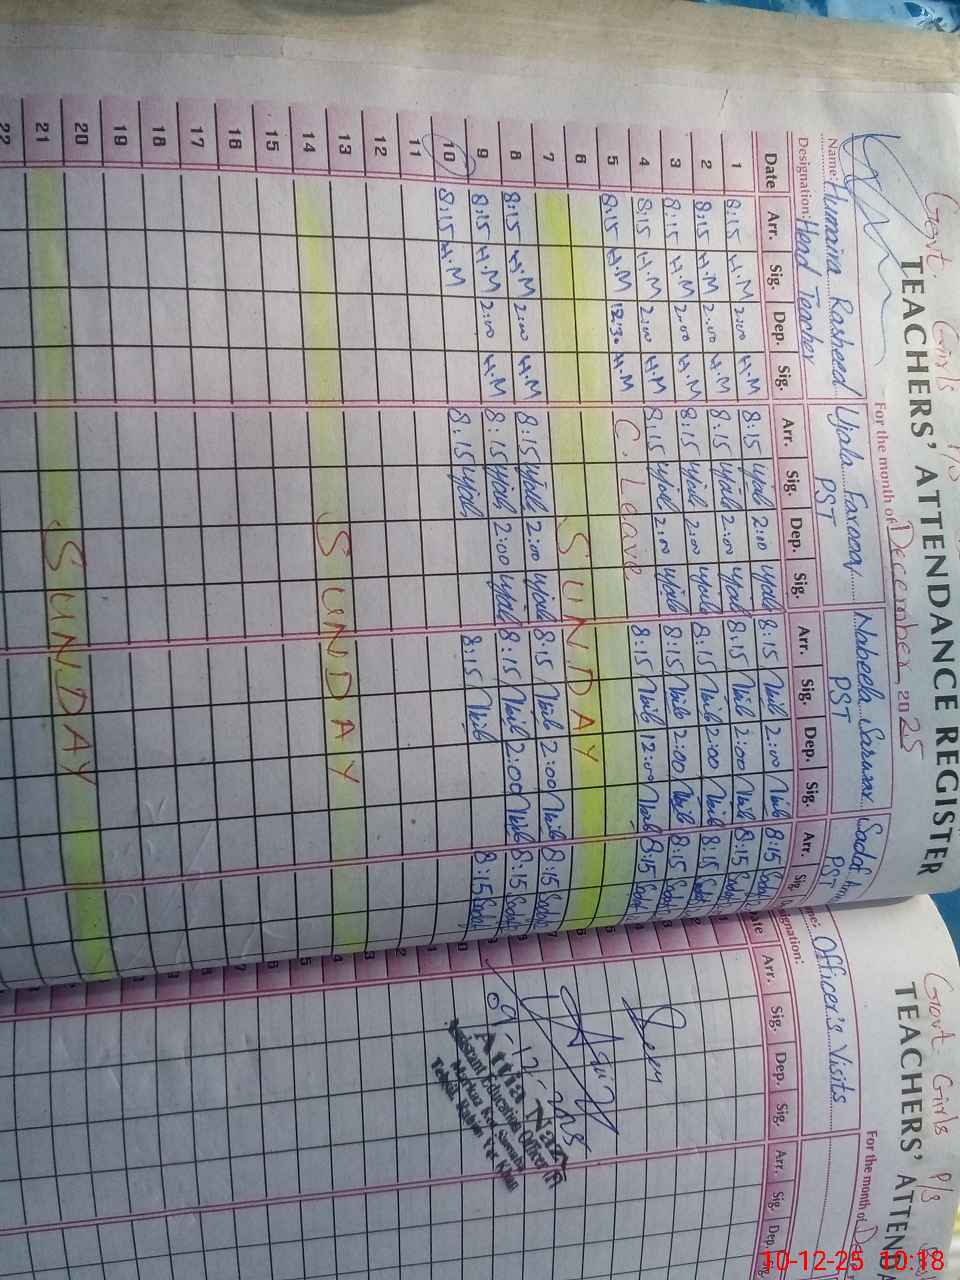 Govt. Girls P/S
TEACHERS' ATTENDANCE REGISTER
For the month of December, 2025
Name: Humaira Rasheed Ujala Farooq Nabeela Sarwar Sadaf
Designation: Head Teacher PST PST PST
Date Arr. Sig. Dep. Sig. Arr. Sig. Dep. Sig. Arr. Sig. Dep. Sig. Arr. Sig.
1 8:15 H.M 2:00 H.M 8:15 Ujala 2:00 Ujala 8:15 2:00 8:15 Sadaf
2 8:15 H.M 2:00 H.M 8:15 Ujala 2:00 Ujala 8:15 2:00 8:15 Sadaf
3 8:15 H.M 2:00 H.M 8:15 Ujala 2:00 Ujala 8:15 2:00 8:15 Sadaf
4 8:15 H.M 2:00 H.M 8:15 Ujala 2:00 Ujala 8:15 2:00 8:15 Sadaf
5 8:15 H.M 12:30 H.M C. Leave 8:15 12:00 8:15 Sadaf
6
7 SUNDAY
8 8:15 H.M 2:00 H.M 8:15 Ujala 2:00 Ujala 8:15 2:00 8:15 Sadaf
9 8:15 H.M 2:00 H.M 8:15 Ujala 2:00 Ujala 8:15 2:00 8:15 Sadaf
10 8:15 H.M 8:15 Ujala 8:15 8:15 Sadaf
11
12
13
14 SUNDAY
15
16
17
18
19
20
21 SUNDAY
22
Govt. Girls P/S
TEACHERS' ATTEND
For the month of
Officer's Visits
Designation:
Arr. Sig. Dep. Sig. Arr. Sig. Dep.
09-12-2025
Attia Naz
Assistant Education Officer
Markaz Kot Samaba
Tehsil Rahim Yar Khan
10-12-25 10:18